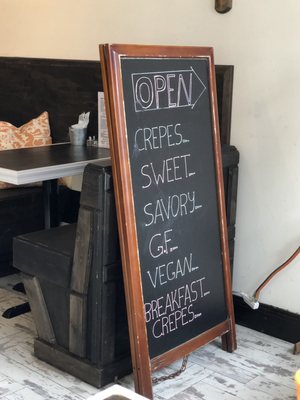 OPEN
CREPES...
SWEET...
SAVORY...
G.F...
VEGAN...
BREAKFAST...
CREPES...